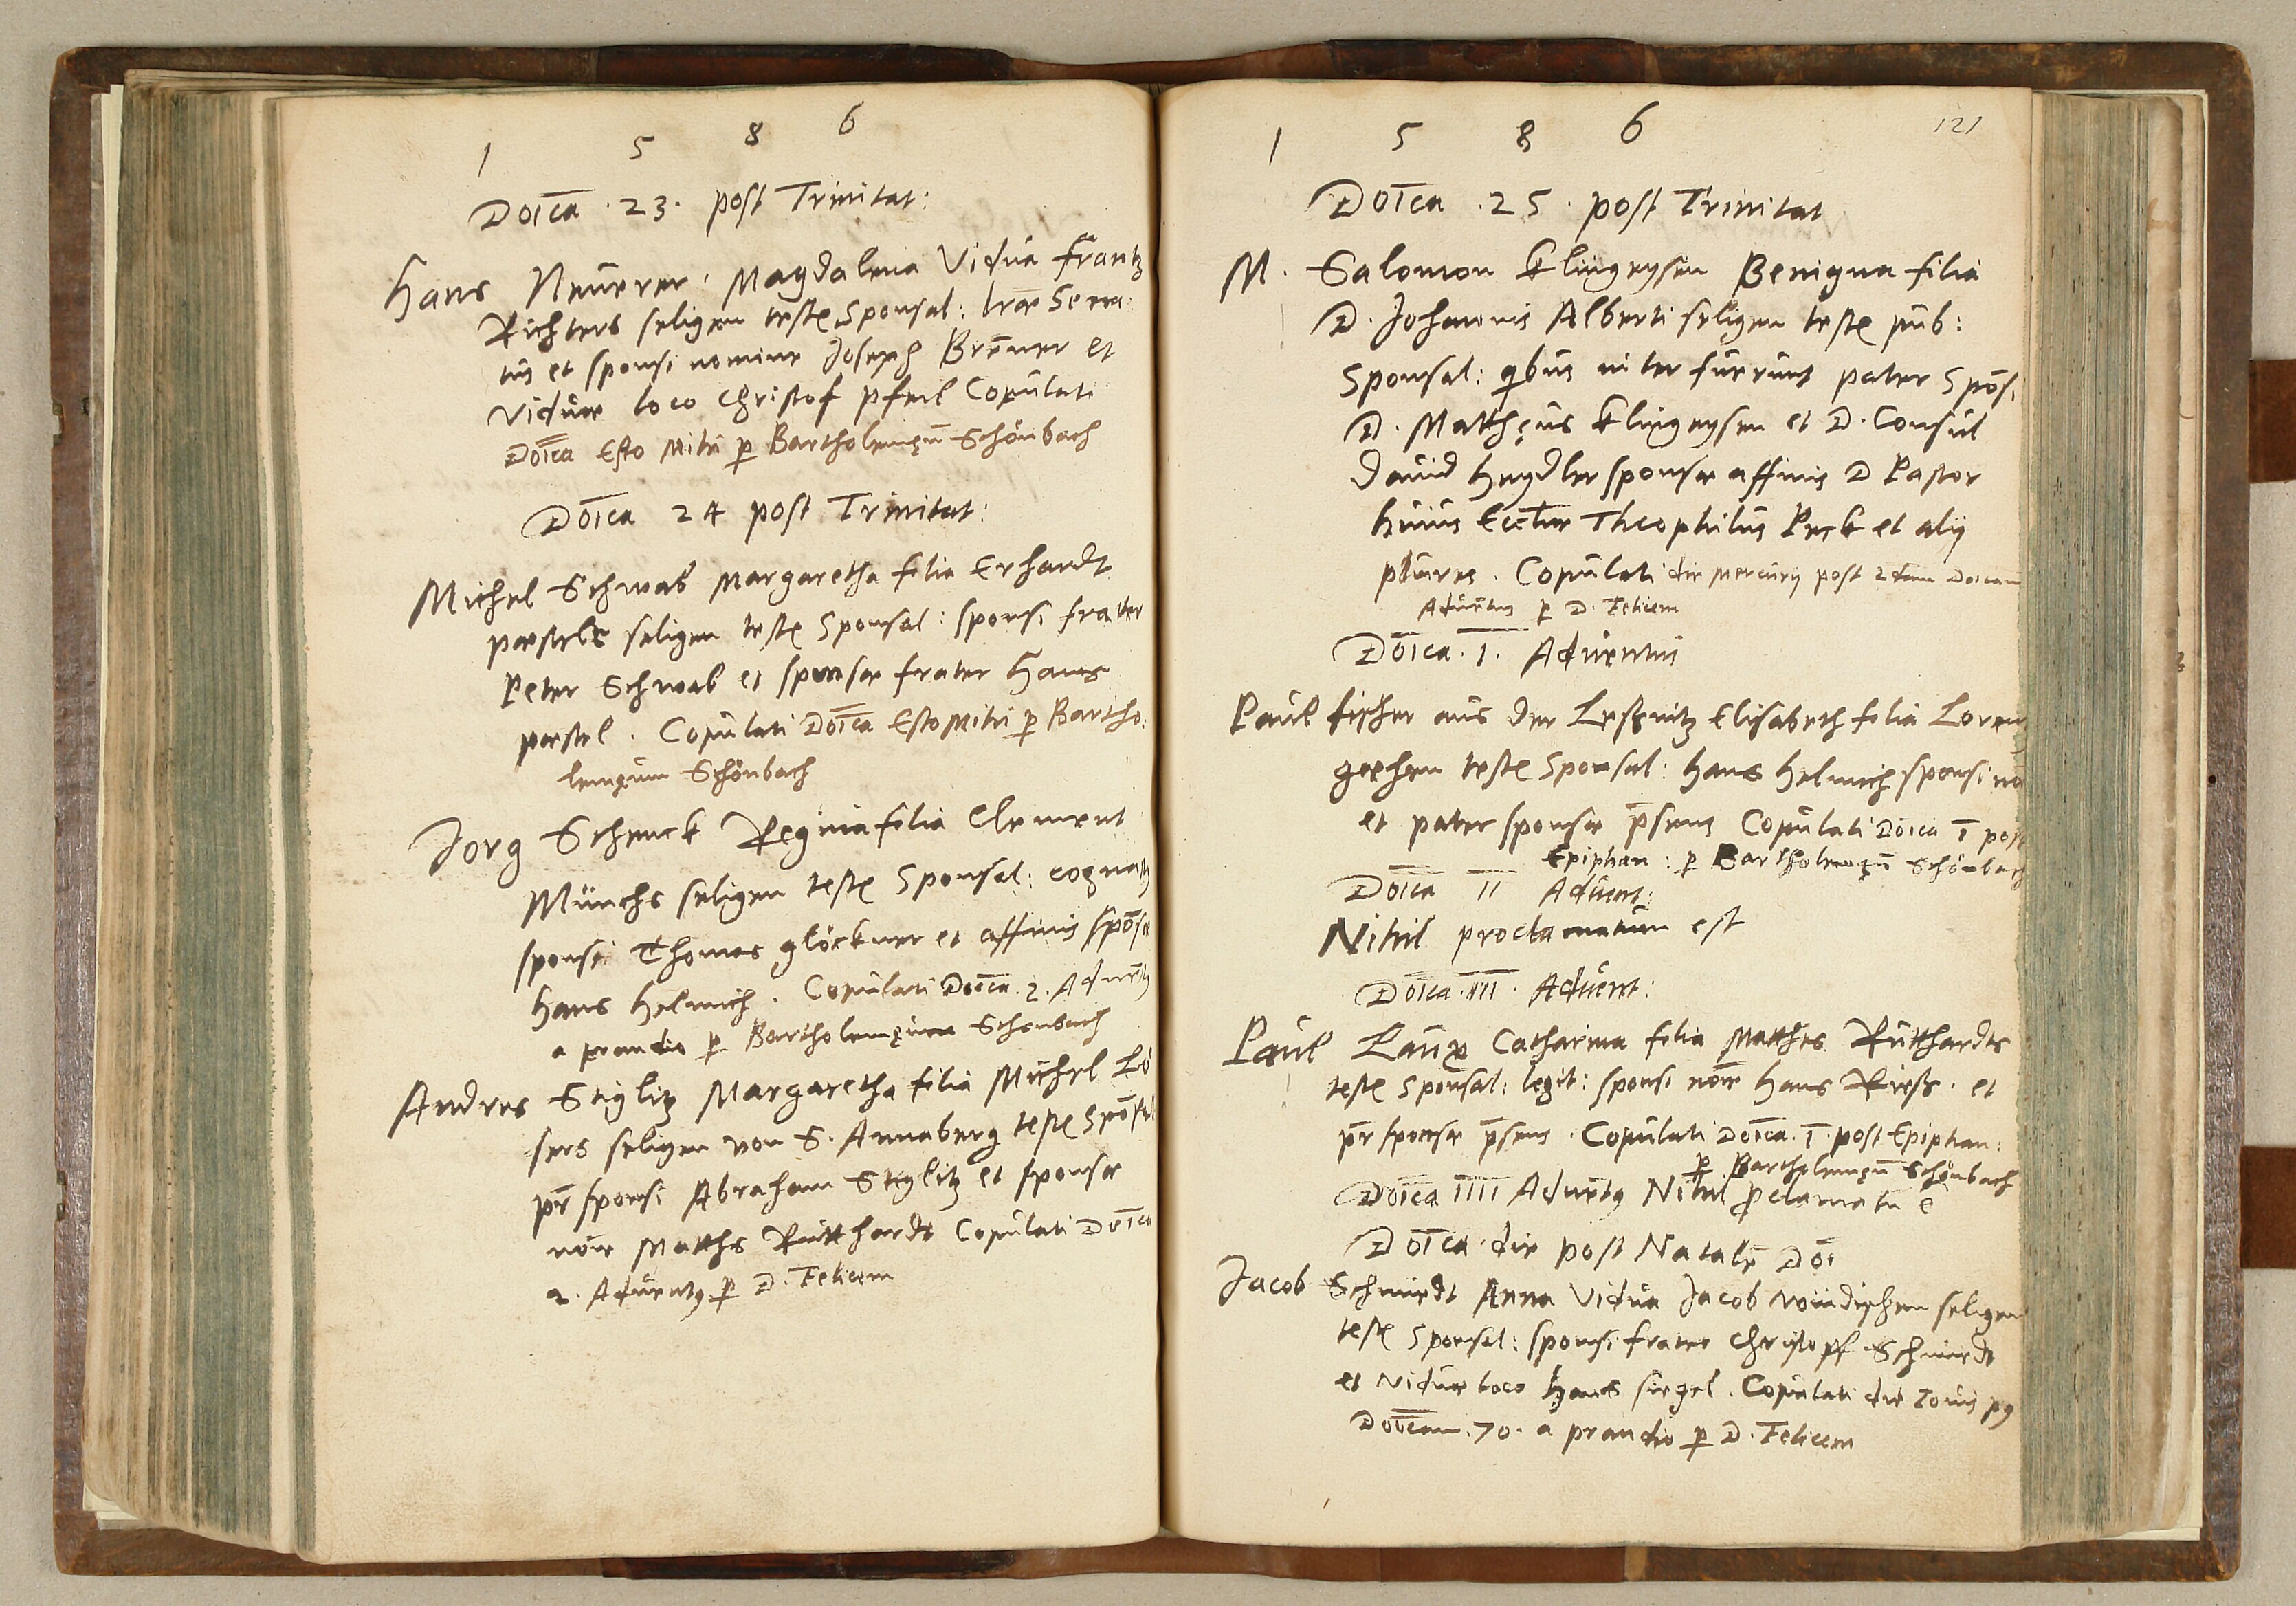 1 5 8 6
Doīca . 23 . post Trinitat:
Hans Neuerer . Magdalena Vidua Frantz
Richters seligen teste Sponsal: lrae Sena-
tus et sponsi nomine Joseph Brenner et
Viduae loco Christof Pfeil Copulati
Doīca Esto Mihi p Bartholemęū Schönbach
Doīca 24 post Trinitat:
Michel Schwab Margaretha filia Erhardt
Poestels seligen teste Sponsal: sponsi frater
Peter Schwab et sponsae frater Hans
Poestel . Copulati Doīca Esto Mihi p Bartho:
lemęum Schönbach
Jorg Schenck Regina filia Clement
Münchs seligen teste Sponsal: cognatꝰ
sponsi Thomas Glöckner et affinis spōsae
Hans Helmich . Copulati Doīca . 2 . Adventꝰ
a prandio p Bartholemęum Schönbach
Andres Stiglitz Margaretha filia Michel Lö
sers seligen von S. Annaberg teste Spōsal
pr̄ sponsi Abraham Stiglitz et sponsae
nōīe Matthes Rütthardt Copulati Doīca
2. Adventꝰ p D. Felicem
121
1 5 8 6
Doīca . 25 . post Trinitat
M. Salomon Klingeysen Benigna filia
D. Johannis Alberti seligen teste pub:
Sponsal: qibus interfuerunt pater Spōsi
D. Mattheus Klingeysen et D. Consul
David Heydler sponsae affinis D Pastor
huius Eccliae Theophilus Beck et alij
plures . Copulati die Mercurij post 2dam Doīcam
Adventus p D. Felicem
Doīca . I . Adventus
Paul Fischer aus der Leßnitz Elisabeth filia Lorentz
teste Sponsal: Hans Helmich sponsi nō
et pater sponsae p̄sens Copulati Doīca I post
Epiphan: p Bartholemęū Schönbach
Doīca II Advent:
Nihil proclamatum est
Doīca . III . Advent:
Paul Laux Catharina filia Matthes Rütthardts
teste Sponsal: legit: sponsi nōīe Hans Rieß . et
pr̄ sponsae p̄sens . Copulati Doīca . I . post Epiphan:
p Bartholemęū Schönbach
Doīca IIII Adventꝰ Nihil pclamatū ē
Doīca die post Natalē Doī
Jacob Schmiedt Anna Vidua Jacob Windischen seligen
teste Sponsal: sponsi frater Christoff Schmiedt
et Viduae loco Hans Siegel . Copulati die Jovis pꝰ
Doīcam . 70 . a prandio p D. Felicem